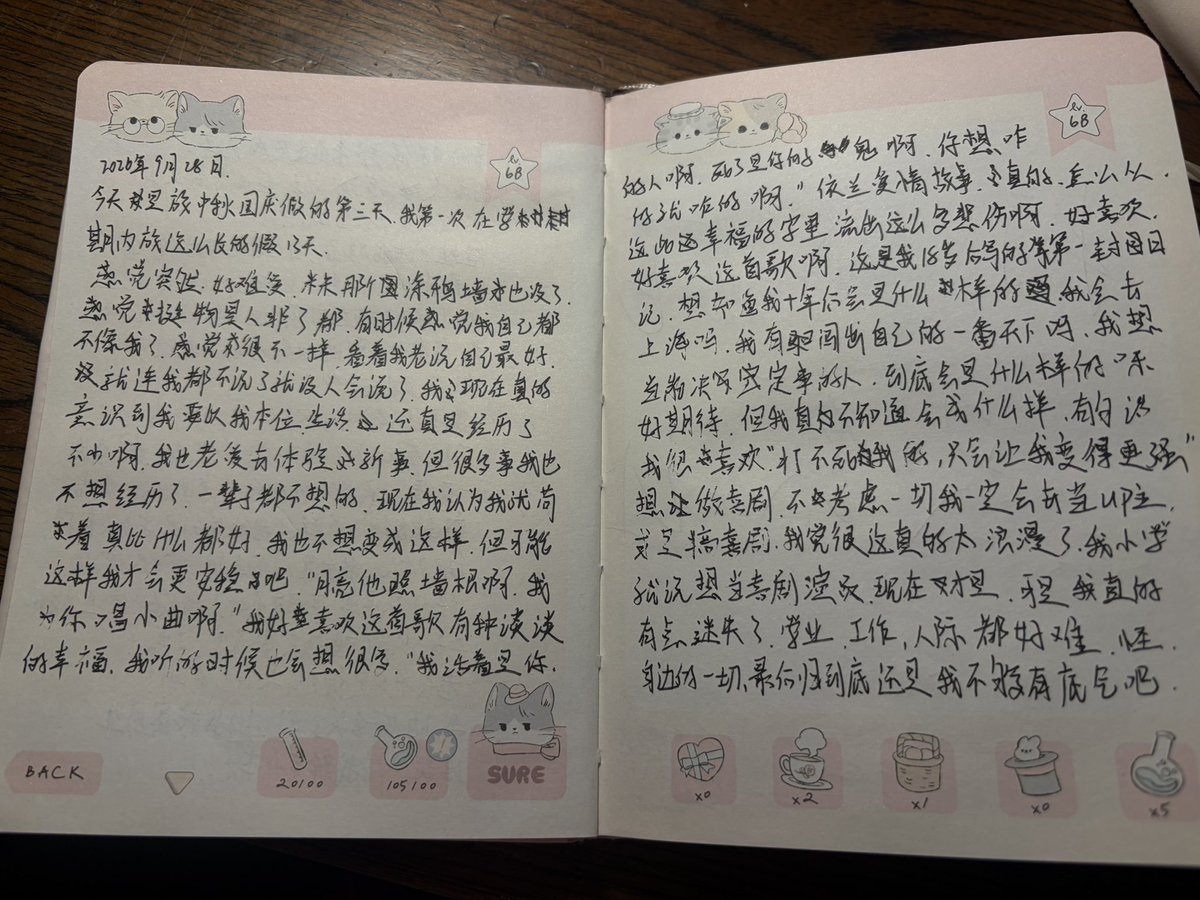 2026年9月28日.
今天是放中秋国庆假的第三天.我第一次在学
期内放这么长的假13天.
感觉突然好难受.来那个涂鸦墙也没了.
感觉挺物是人非了都.有时候感觉我自己都
不像我了.感觉很不一样.看着我老说自己最好.
没就连我都不说了就没人会说了.我现在真的
意识到我要以我本位.生活还真是经历了
不少啊.我也老没有体验新事.但很多事我也
不想经历了.一辈子都不想的.现在我认为我就苟
着真比什么都好.我也不想变成这样.但可能
这样我才会更安稳吧."月亮他照墙根啊.我
为你唱小曲啊."我好喜欢这首歌有种淡淡
的幸福.我听的时候也会想很多."我活着是你.
LV.
68
BACK
20/00
105/00
SURE
的人啊.死了是你的鬼啊.你想咋
的就咋的啊."依兰爱情故事.真的.怎么从.
这些这幸福的字里流出这么多悲伤啊.好喜欢.
好喜欢这首歌啊.这是我18岁后写的第一封日
记.想知道我十年后会是什么样的.我会去
上海吗.我有闯出自己的一番天下吗.我想
当安定章的人.到底会是什么样的呀
好期待.但我真的不知道会成什么样.有句话
我很喜欢"打不死我的,只会让我变得更强"
想做喜剧.不考虑一切我一定会去当up主.
或是搞喜剧.我觉得这真的太浪漫了.我小学
就说想当喜剧演员.现在才是.可是我真的
有点迷失了.学业.工作,人际都好难.怪
身边的一切.最后归到底还是我不够有底气吧.
LV.
68
x0
x2
x1
x0
x5